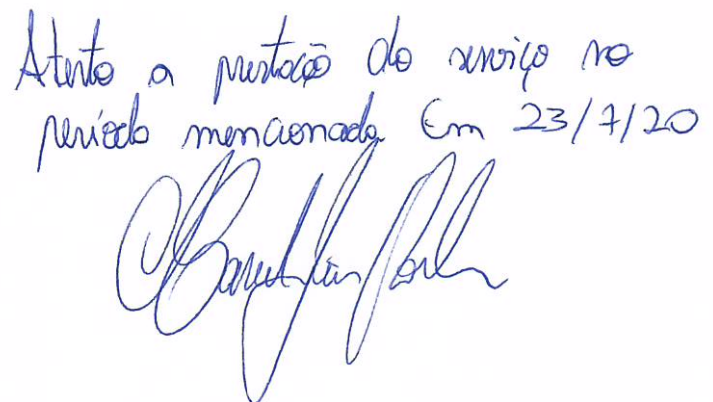 Atesto a prestação do serviço no
período mencionado. Em 23/7/20